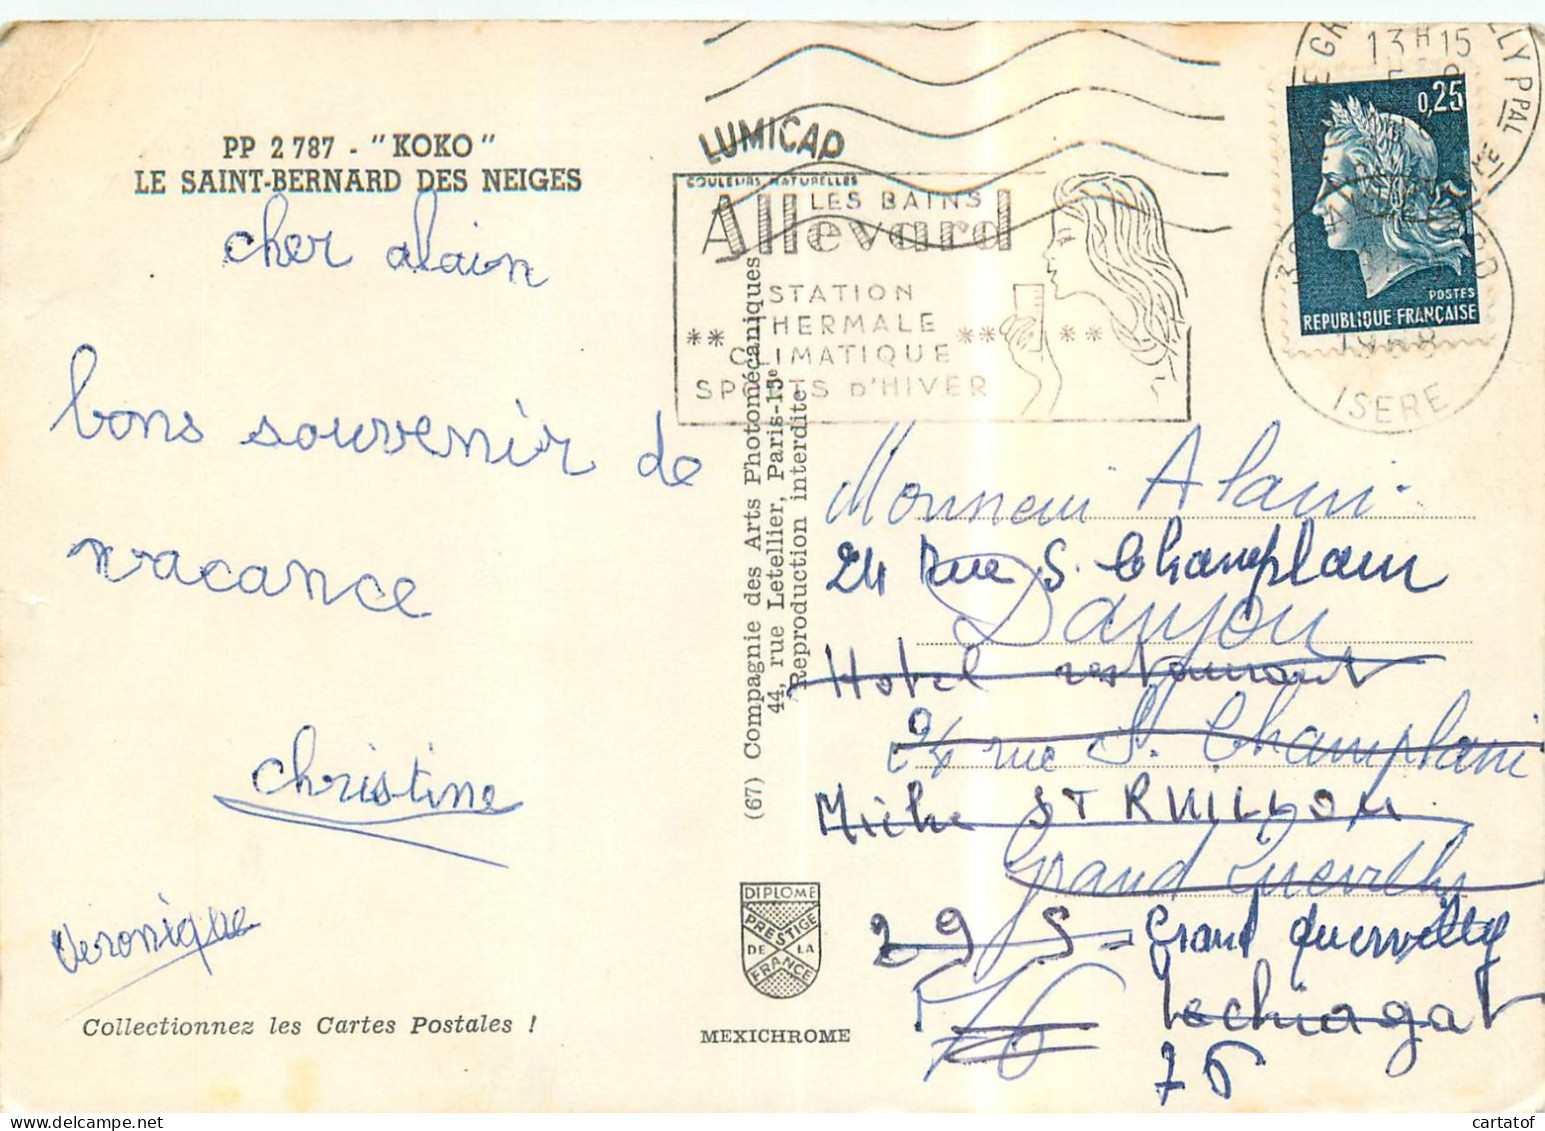 PP 2 787 - "KOKO"
LE SAINT-BERNARD DES NEIGES
cher alain
bons souvenir de
vacance
christine
veronique
Collectionnez les Cartes Postales !
LUMICAP
COULEURS NATURELLES
LES BAINS
Allevard
STATION
THERMALE
CLIMATIQUE
SPORTS D'HIVER
(67) Compagnie des Arts Photomécaniques
44, rue Letellier, Paris-15e
Reproduction interdite
DIPLOME
PRESTIGE
DE LA
FRANCE
MEXICHROME
13H15
PPAL
0,25
POSTES
REPUBLIQUE FRANÇAISE
1968
ISERE
Monsieur Alain
24 Rue S. Champlain
Danjou
Hotel restaurant
24 rue St. Champlain
Miche STRUILLOU
Grand Quevilly
29 S - Grand Quevilly
76 Lechiagat
76
cartatof